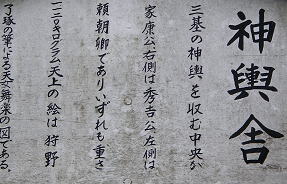 神輿舎
三基の神輿を収む中央が
家康公右側は秀吉公左側は
頼朝卿でありいずれも重さ
一一二〇キログラム天上の絵は狩野
了琢の筆による天女舞楽の図である。